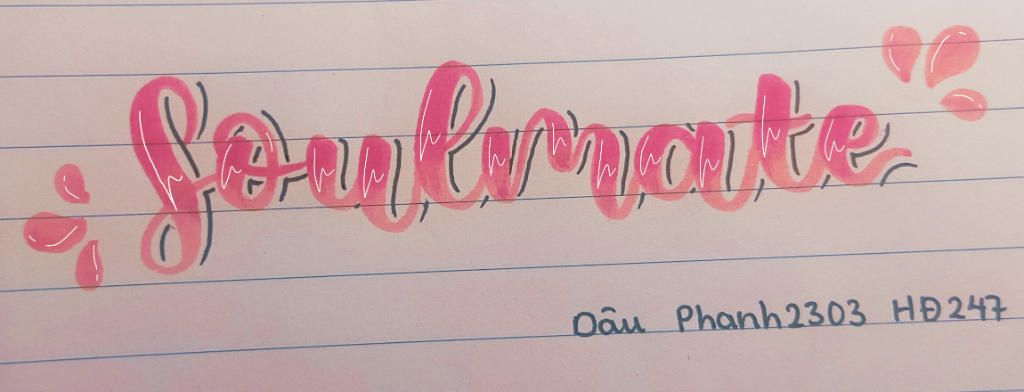 Soulmate
Dâu Phanh2303 HĐ247